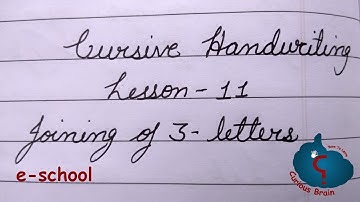 Cursive Handwriting
Lesson - 11
Joining of 3 - letters
e-school
Curious Brain